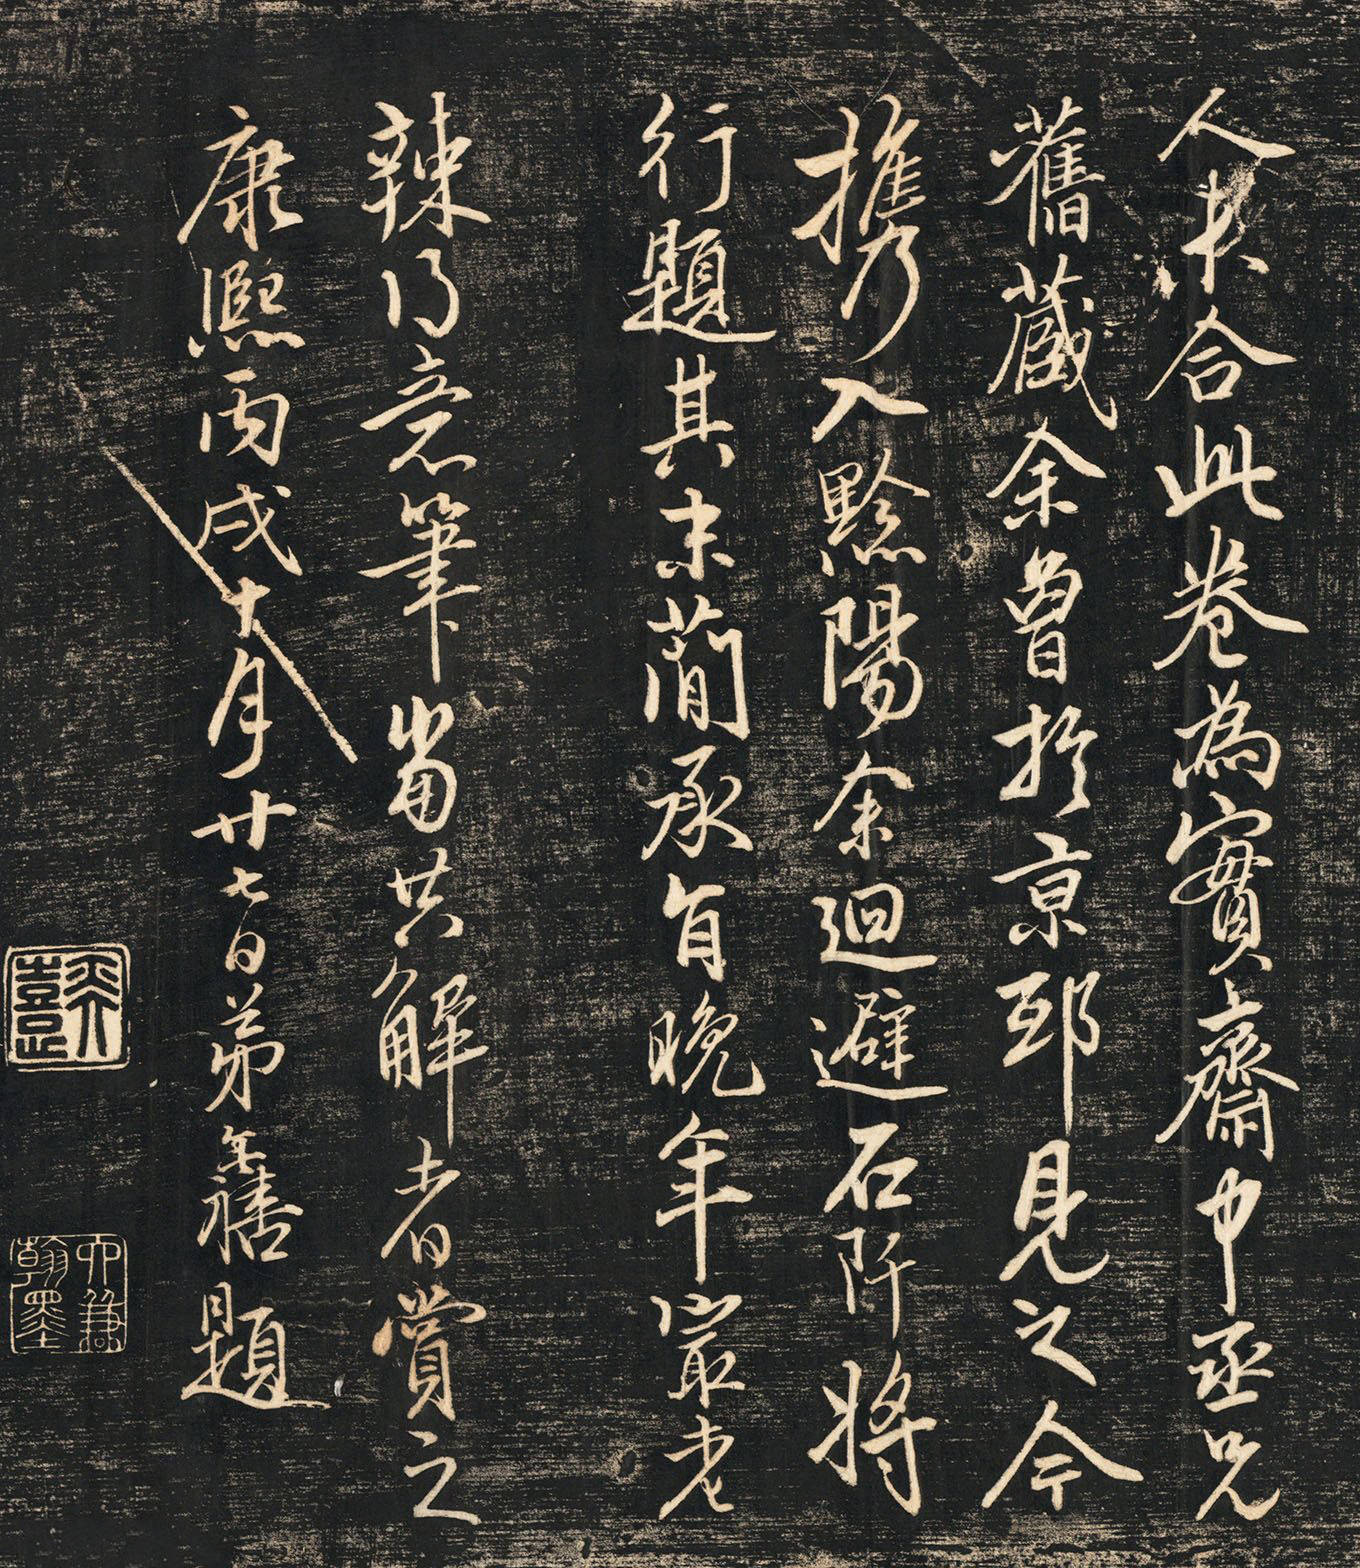 人未合此卷為實齋中丞兄
舊藏余曾於京邸見之今
攜入黔陽余迴避石阡將
行題其末簡承旨晚年最老
辣得意筆當共解者賞之
康熙丙戌十月廿七日弟奕禧題